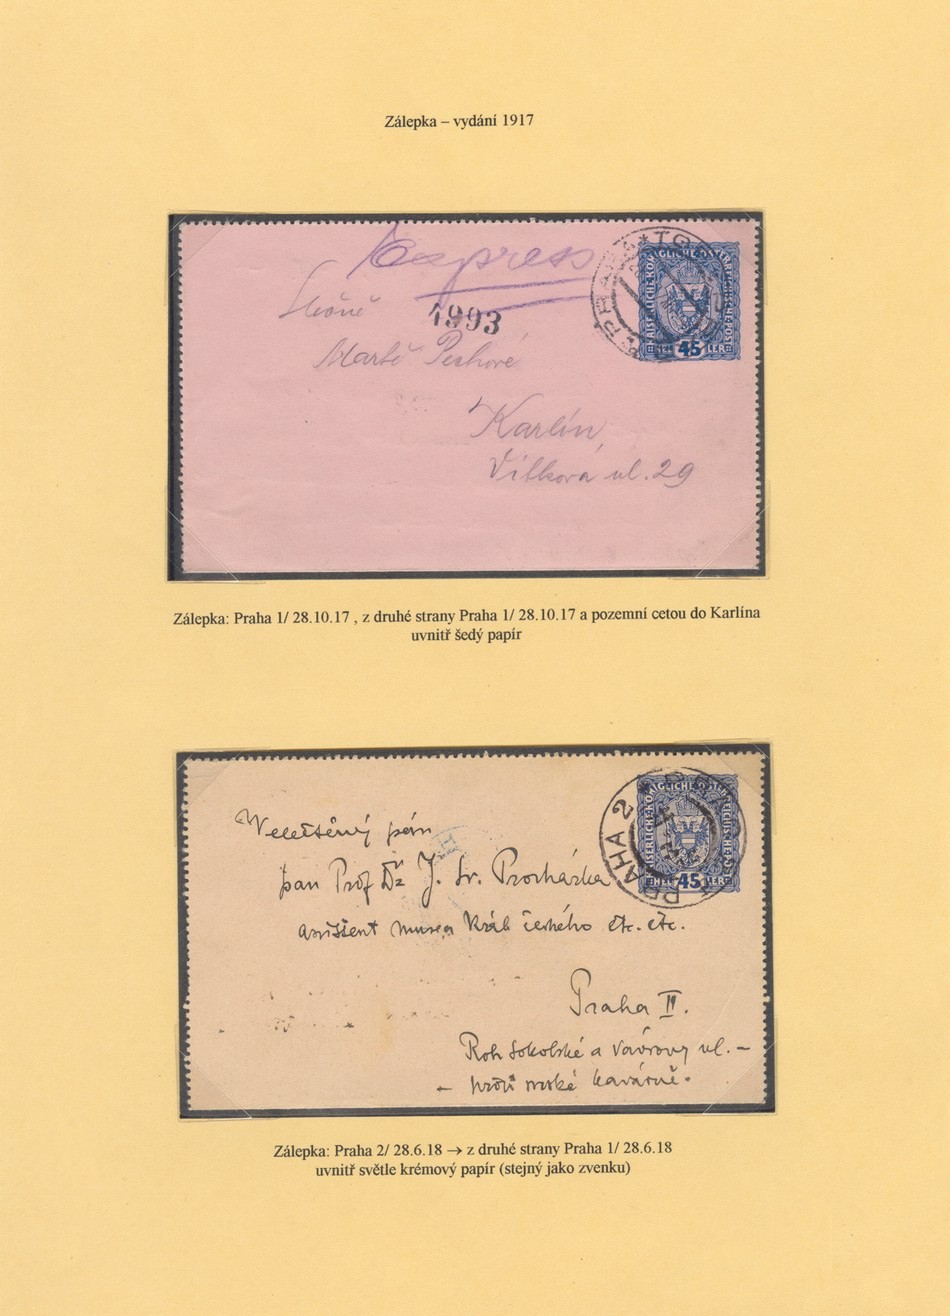 Zálepka – vydání 1917
Express
Slečně
4993
Martě Pechové
Karlín,
Vítkova ul. 29
KAISERLICHE KÖNIGLICHE ÖSTERREICHISCHE POST
HELLER 45
Zálepka: Praha 1/ 28.10.17 , z druhé strany Praha 1/ 28.10.17 a pozemní cetou do Karlína
uvnitř šedý papír
PRAHA 2
KAISERLICHE KÖNIGLICHE ÖSTERREICHISCHE POST
HELLER 45
Veletěný pán
pan Prof Dr J. Sv. Procházka
assistent musea král českého etc. etc.
Praha II.
Roh Sokolské a Vávrovy ul. –
– proti kavárně.
Zálepka: Praha 2/ 28.6.18 → z druhé strany Praha 1/ 28.6.18
uvnitř světle krémový papír (stejný jako zvenku)